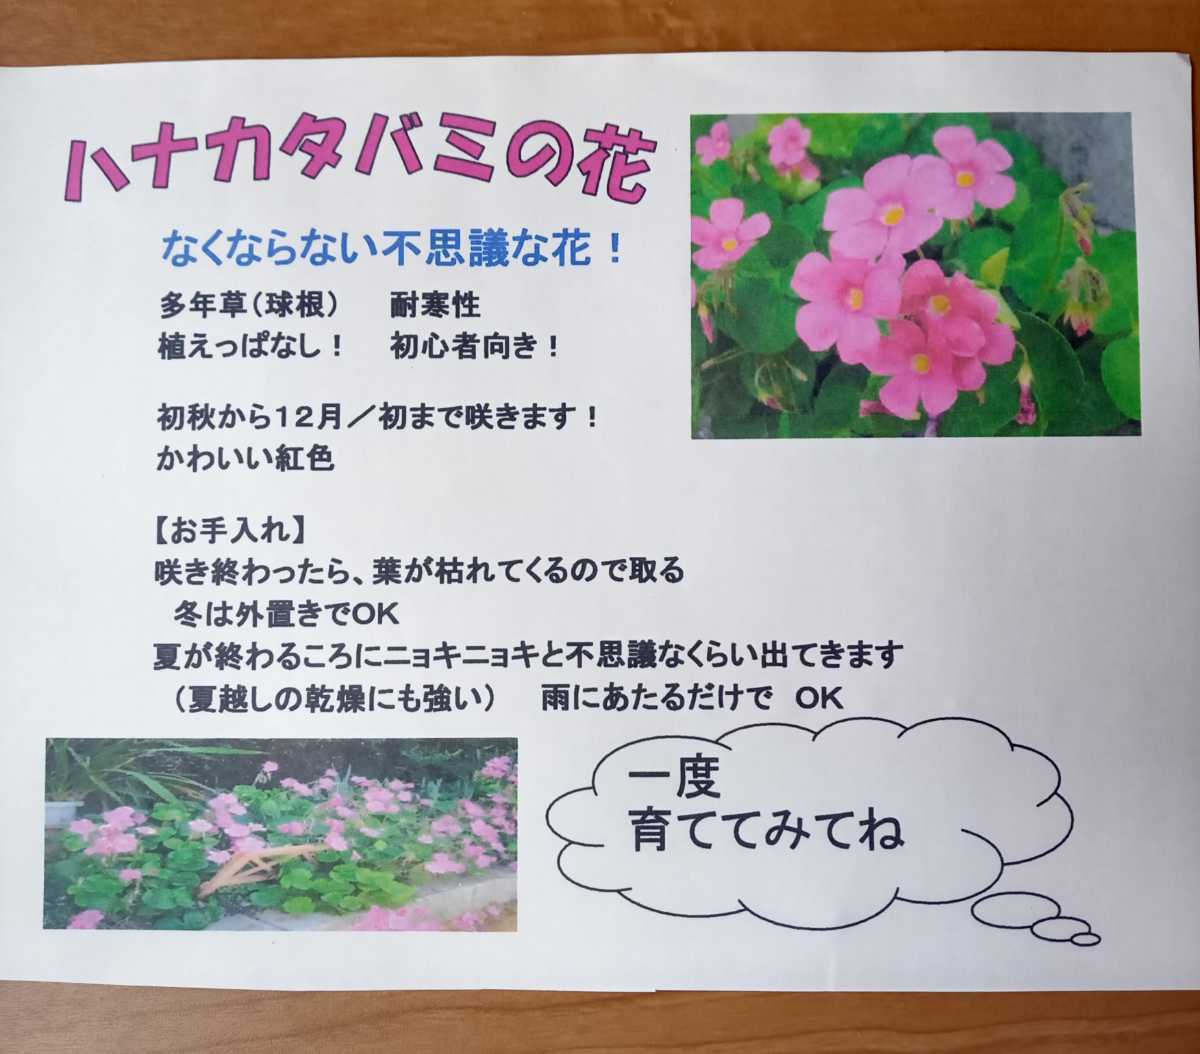 ハナカタバミの花
なくならない不思議な花！
多年草（球根）　耐寒性
植えっぱなし！　初心者向き！
初秋から１２月／初まで咲きます！
かわいい紅色
【お手入れ】
咲き終わったら、葉が枯れてくるので取る
冬は外置きでＯＫ
夏が終わるころにニョキニョキと不思議なくらい出てきます
（夏越しの乾燥にも強い）　雨にあたるだけで　ＯＫ
一度
育ててみてね